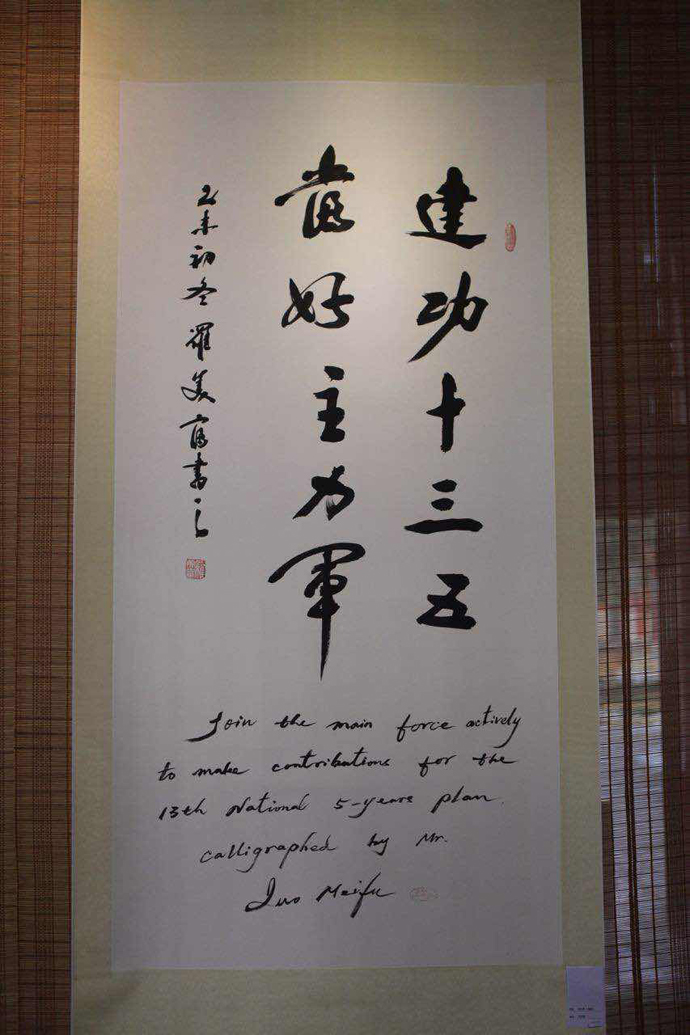 建功十三五
当好主力军
乙未初冬罗美富书之
Join the main force actively
to make contributions for the
13th National 5-years plan.
calligraphed by Mr.
Luo Meifu